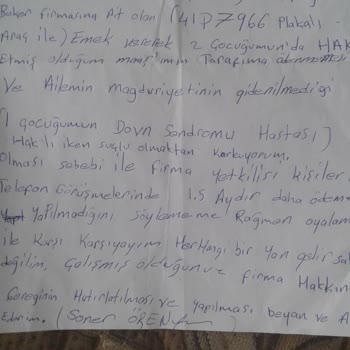 Bakır firmasına Ait olan (41 P 7966 Plakalı
Araç ile) Emek vererek 2 Çocuğumun'da HAK
Etmiş olduğum maaşımın Tarafıma
Ve Ailemin mağduriyetinin giderilmediği
(1 çocuğumun Down Sondromu Hastası)
Haklı iken suçlu olmaktan korkuyorum.
Olması sebebi ile firma yetkilisi kişiler
Telefon Görüşmelerinde 1.5 Aydır daha ödeme
Yapılmadığını söylememe Rağmen oyalama
ile Karşı Karşıyayım Herhangi bir yan gelir sa
değilim, Çalışmış olduğumuz firma Hakkın
Gereğinin Hatırlatılması ve yapılması beyan ve A
Ederim. (Soner ÖREN